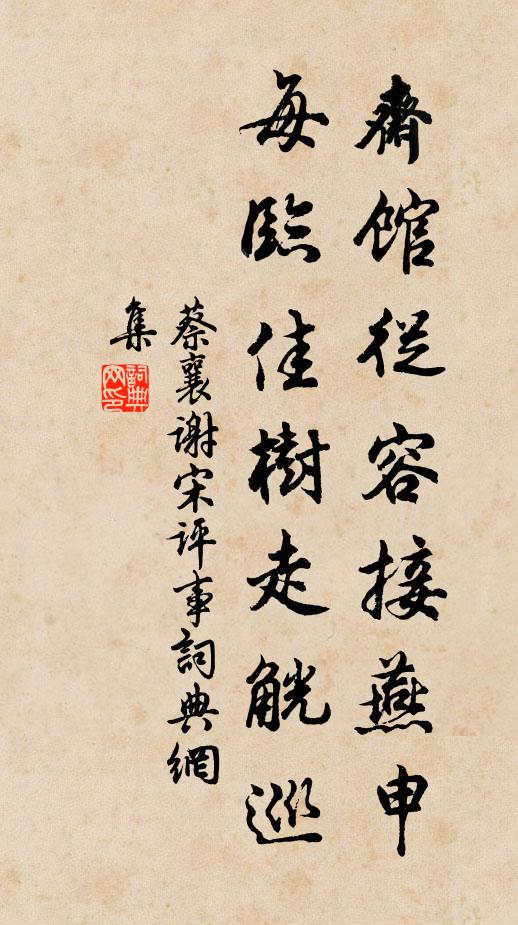 齋館從容接燕申
每臨佳樹走觥巡
蔡襄谢宋评事詞典網
集
詞典网印